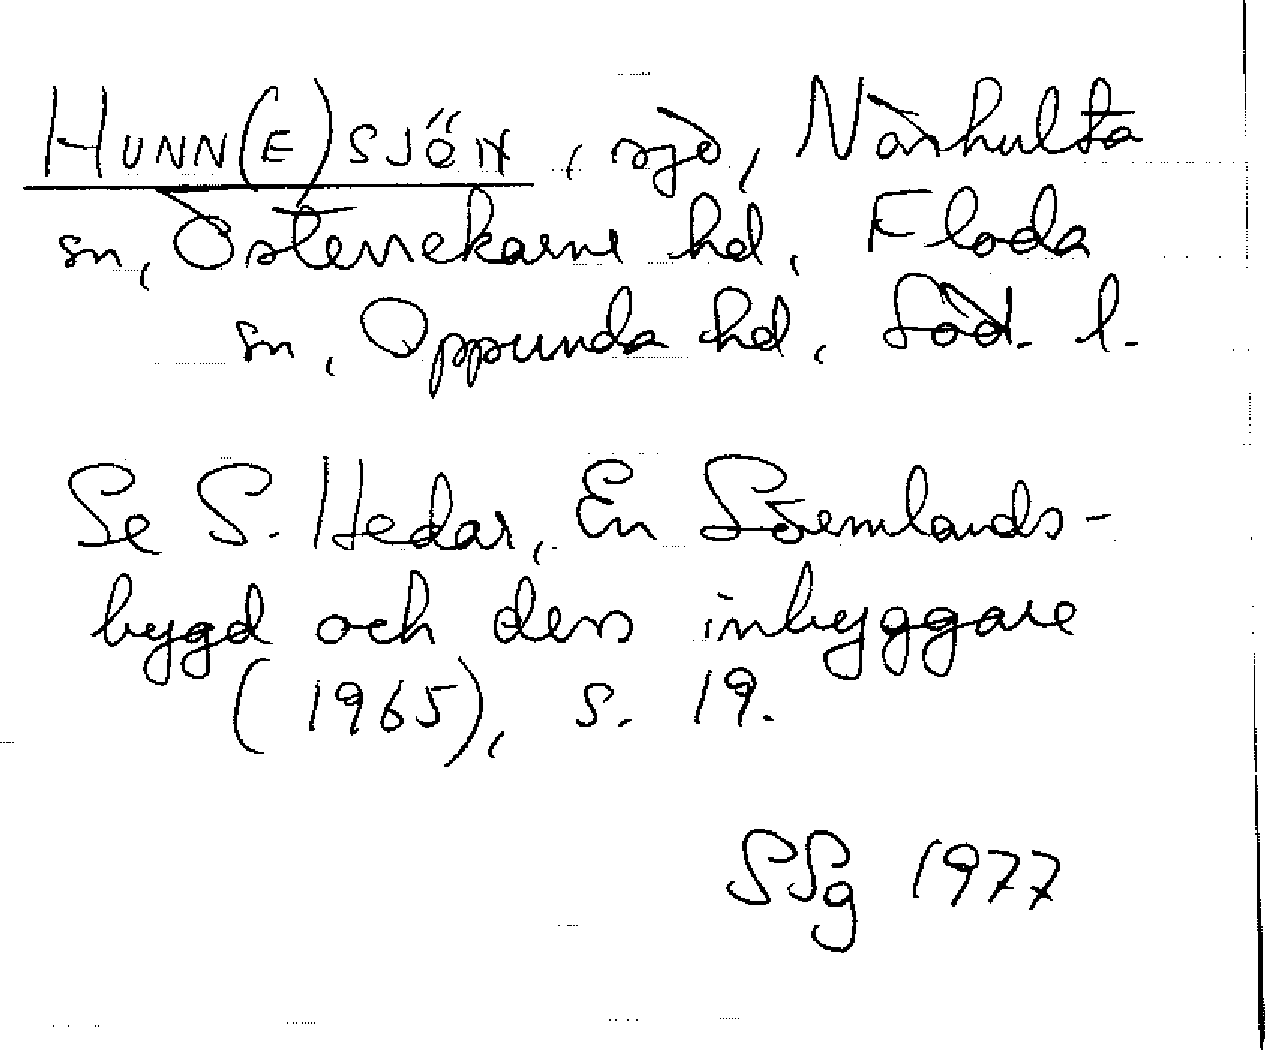 HUNN(E)SJÖN, sjö, Närshulta
sn, Österrekarne hd, Floda
sn, Oppunda hd, Söd. l.
Se S. Hedar, En Sörmlands-
bygd och dess inbyggare
(1965), s. 19.
SSg 1977